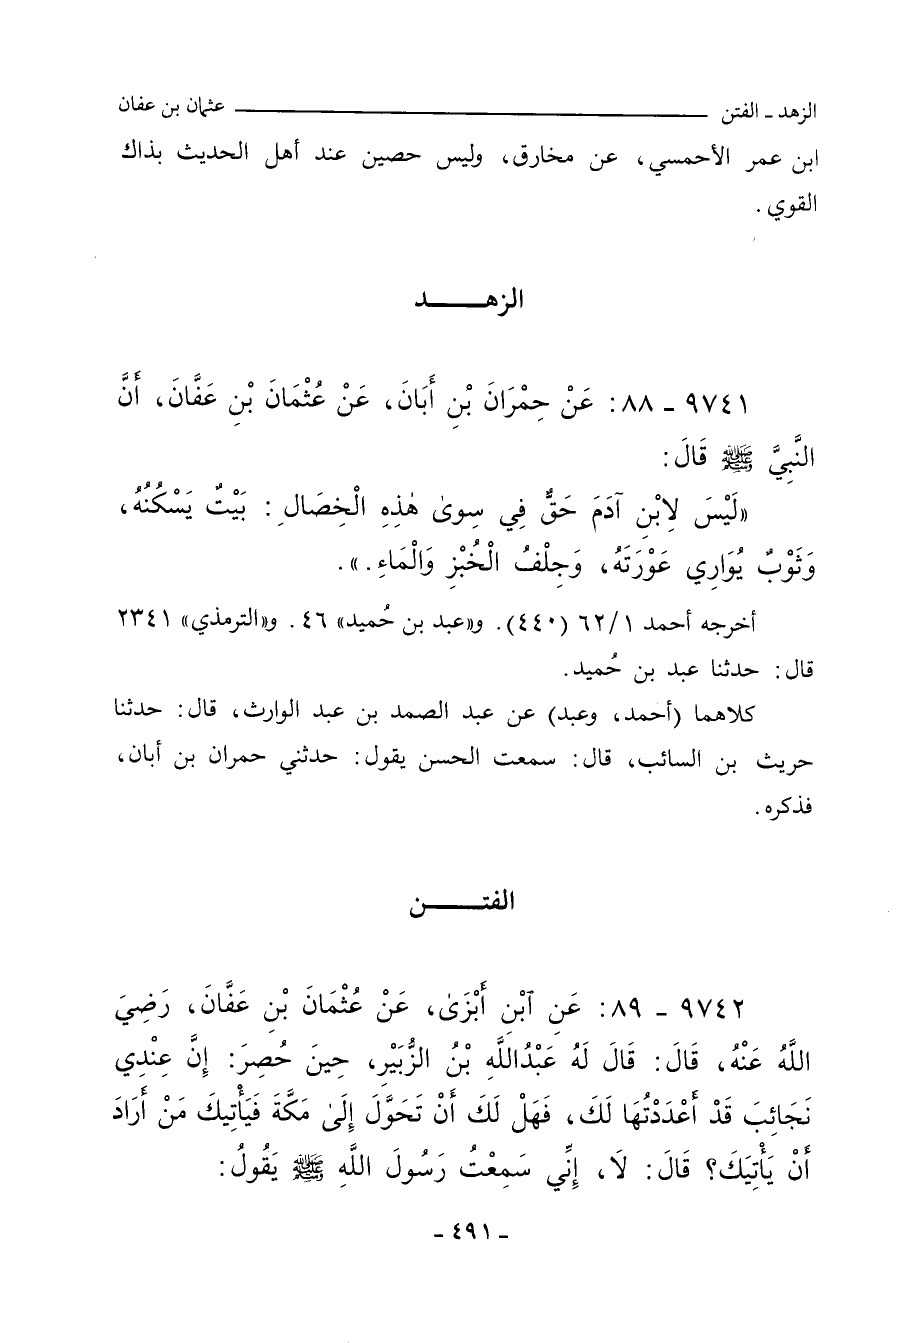 الزهد ـ الفتن ــــــــــــــــــــ عثمان بن عفان
ابن عمر الأحمسي، عن مخارق، وليس حصين عند أهل الحديث بذاك
القوي.
الزهـــــد
٩٧٤١ ـ ٨٨: عَنْ حِمْرَانَ بْنِ أَبَانَ، عَنْ عُثْمَانَ بْنِ عَفَّانَ، أَنَّ
النَّبِيَّ ﷺ قَالَ:
«لَيْسَ لِابْنِ آدَمَ حَقٌّ فِي سِوىٰ هٰذِهِ الْخِصَالِ: بَيْتٌ يَسْكُنُهُ،
وَثَوْبٌ يُوَارِي عَوْرَتَهُ، وَجِلْفُ الْخُبْزِ وَالْمَاءِ.».
أخرجه أحمد ٦٢/١ (٤٤٠). و«عبد بن حُميد» ٤٦. و«الترمذي» ٢٣٤١
قال: حدثنا عبد بن حُميد.
كلاهما (أحمد، وعبد) عن عبد الصمد بن عبد الوارث، قال: حدثنا
حريث بن السائب، قال: سمعت الحسن يقول: حدثني حمران بن أبان،
فذكره.
الفتـــــن
٩٧٤٢ ـ ٨٩: عَنِ آبْنِ أَبْزَىٰ، عَنْ عُثْمَانَ بْنِ عَفَّانَ، رَضِيَ
اللَّهُ عَنْهُ، قَالَ: قَالَ لَهُ عَبْدُاللَّهِ بْنُ الزُّبَيْرِ، حِينَ حُصِرَ: إِنَّ عِنْدِي
نَجَائِبَ قَدْ أَعْدَدْتُهَا لَكَ، فَهَلْ لَكَ أَنْ تَحَوَّلَ إِلَىٰ مَكَّةَ فَيَأْتِيكَ مَنْ أَرَادَ
أَنْ يَأْتِيَكَ؟ قَالَ: لَا، إِنِّي سَمِعْتُ رَسُولَ اللَّهِ ﷺ يَقُولُ:
- ٤٩١ -